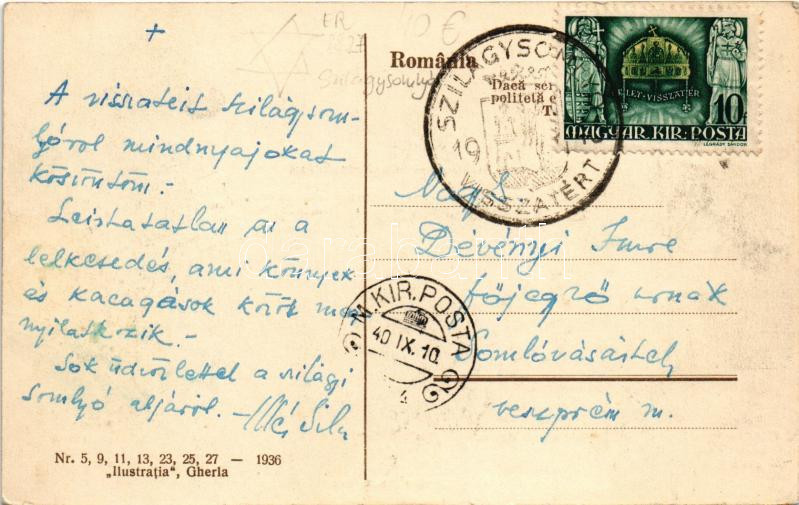 ER
10 €
Szilágysomlyó
A visszatért szilágysom-
lyóról mindnyájokat
köszöntöm.-
Leírhatatlan az a
lelkesedés, ami könnyek
és kacagások közöt meg
nyilatkozik.-
Sok üdvözlettel a szilági
somlyó aljáról.-
Nr. 5, 9, 11, 13, 23, 25, 27 — 1936
„Ilustrația", Gherla
România
Dacă
politetă
SZILÁGYSOM
19
VISSZATÉRT
KELET·VISSZATÉR
10f
MAGYAR·KIR·POSTA
LÉGRÁDY SÁNDOR
M.KIR.POSTA
40 IX. 10.
Nagys
Dévényi Imre
főjegyző urnak
Somlóvásárhely
veszprém m.
darabanth